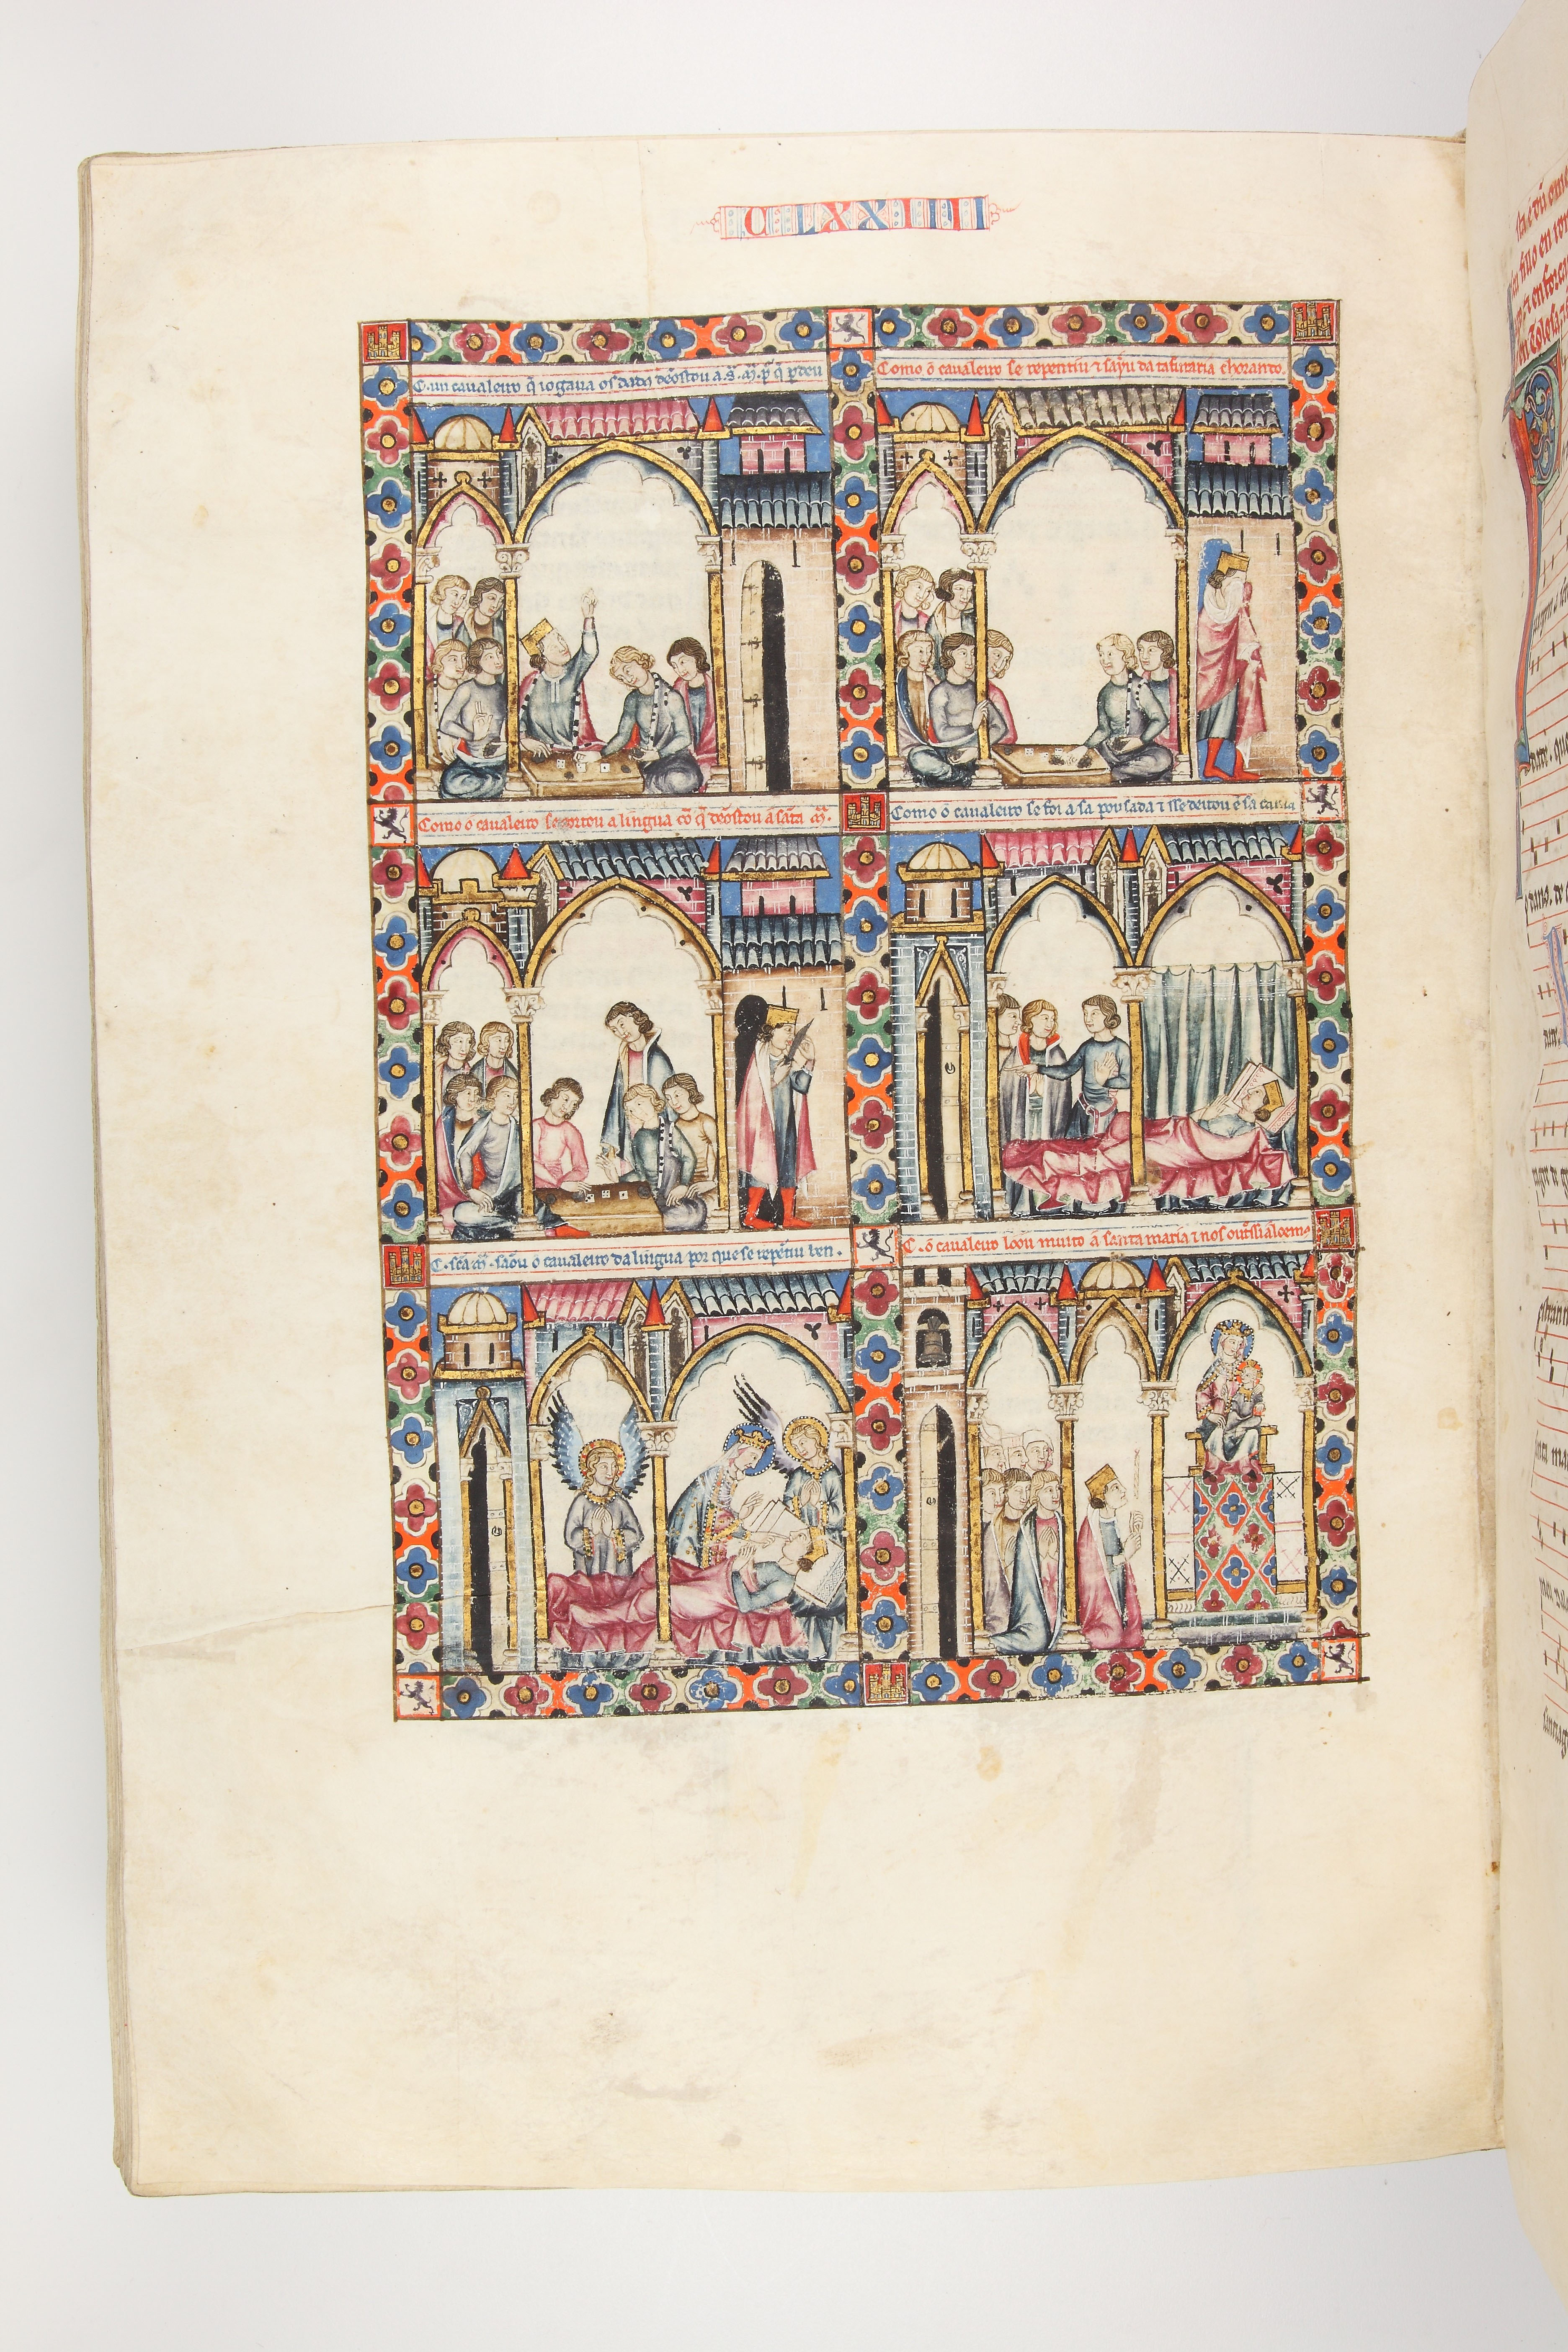 CLXXIIII
C. un cavaleiro q̃ iogava os dados deostou a. s. m̃. p̃ q̃ pdeu
Como o cavaleiro se repentiu ⁊ sayu da tafuraria chorando.
Como o cavaleiro se cortou a lingua cõ q̃ deostou a sãta m̃.
Como o cavaleiro se foi a sa pousada ⁊ sse deitou ẽ sa cama
C. scã m̃. saou o cavaleiro da lingua por que se repẽtiu ben.
C. o cavaleiro loou muito a santa maria ⁊ nos outrssi a loemos